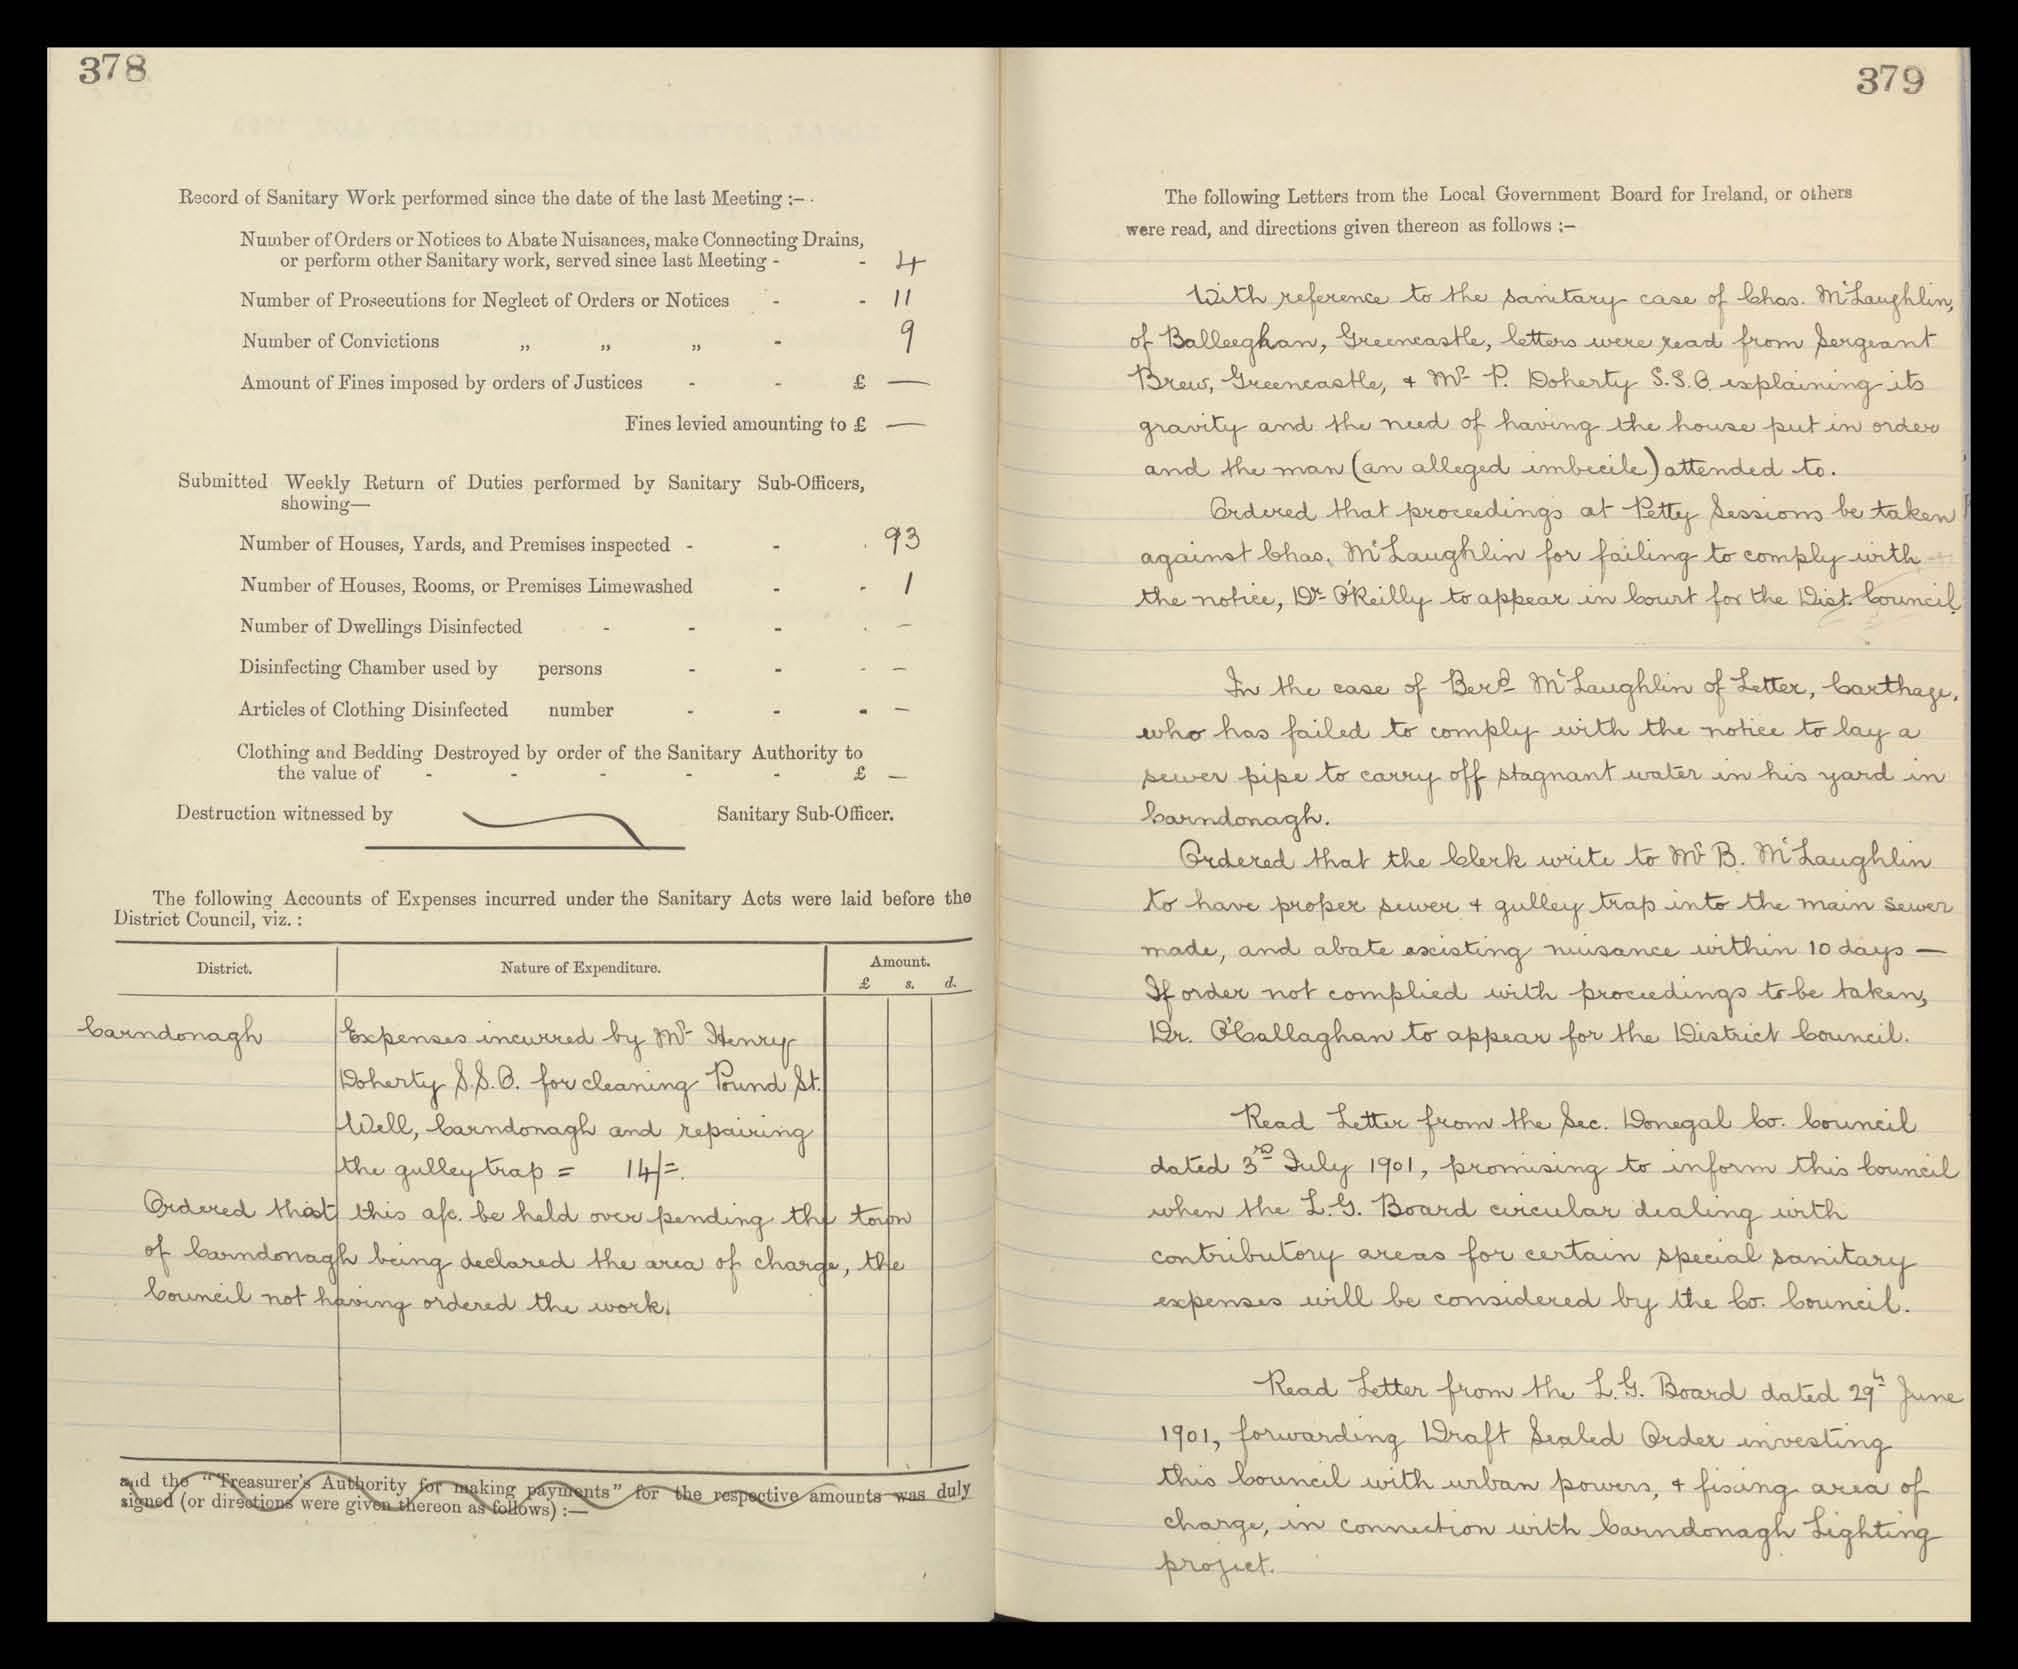 378
Record of Sanitary Work performed since the date of the last Meeting :-
Number of Orders or Notices to Abate Nuisances, make Connecting Drains,
or perform other Sanitary work, served since last Meeting - - 4
Number of Prosecutions for Neglect of Orders or Notices - - 11
Number of Convictions „ „ „ - 9
Amount of Fines imposed by orders of Justices - - £ —
Fines levied amounting to £ —
Submitted Weekly Return of Duties performed by Sanitary Sub-Officers,
showing—
Number of Houses, Yards, and Premises inspected - - 93
Number of Houses, Rooms, or Premises Limewashed - - 1
Number of Dwellings Disinfected - - - - –
Disinfecting Chamber used by persons - - - –
Articles of Clothing Disinfected number - - - –
Clothing and Bedding Destroyed by order of the Sanitary Authority to
the value of - - - - - £ —
Destruction witnessed by Sanitary Sub-Officer.
The following Accounts of Expenses incurred under the Sanitary Acts were laid before the
District Council, viz. :
District. Nature of Expenditure. Amount.
£ s. d.
Carndonagh Expenses incurred by Mr Henry
Doherty S.S.O. for cleaning Pound St.
Well, Carndonagh and repairing
the gulley trap = 14/=.
Ordered that this a/c. be held over pending the town
of Carndonagh being declared the area of charge, the
Council not having ordered the work.
and the "Treasurer's Authority for making payments" for the respective amounts was duly
signed (or directions were given thereon as follows) :—
379
The following Letters from the Local Government Board for Ireland, or others
were read, and directions given thereon as follows :—
With reference to the sanitary case of Chas. McLaughlin,
of Balleeghan, Greencastle, letters were read from Sergeant
Brew, Greencastle, + Mr P. Doherty S.S.O. explaining its
gravity and the need of having the house put in order
and the man (an alleged imbecile) attended to.
Ordered that proceedings at Petty Sessions be taken
against Chas. McLaughlin for failing to comply with
the notice, Dr O'Reilly to appear in Court for the Dist. Council.
In the case of Berd McLaughlin of Letter, Carthage,
who has failed to comply with the notice to lay a
sewer pipe to carry off stagnant water in his yard in
Carndonagh.
Ordered that the Clerk write to Mr B. McLaughlin
to have proper sewer + gulley trap into the main sewer
made, and abate existing nuisance within 10 days —
If order not complied with proceedings to be taken,
Dr. O'Callaghan to appear for the District Council.
Read Letter from the Sec. Donegal Co. Council
dated 3rd July 1901, promising to inform this Council
when the L.G. Board circular dealing with
contributory areas for certain special sanitary
expenses will be considered by the Co. Council.
Read Letter from the L.G. Board dated 29th June
1901, forwarding Draft Sealed Order investing
this Council with urban powers, + fixing area of
charge, in connection with Carndonagh Lighting
project.